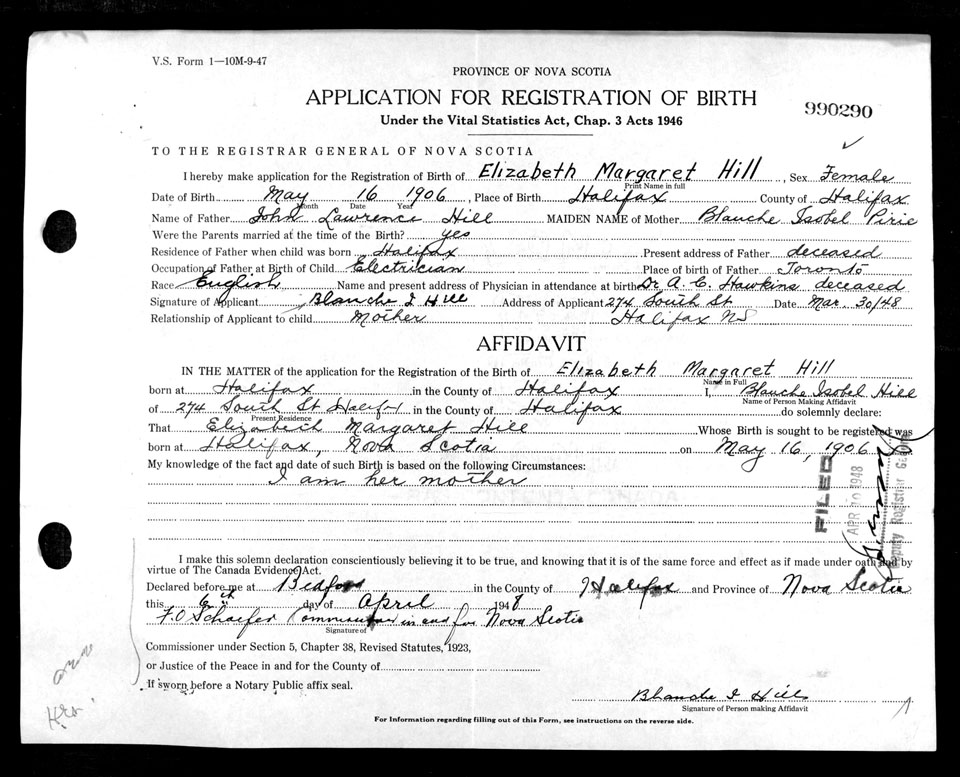 V.S. Form 1—10M-9-47
PROVINCE OF NOVA SCOTIA
APPLICATION FOR REGISTRATION OF BIRTH
990290
Under the Vital Statistics Act, Chap. 3 Acts 1946
TO THE REGISTRAR GENERAL OF NOVA SCOTIA
I hereby make application for the Registration of Birth of Elizabeth Margaret Hill, Sex Female
Print Name in full
Date of Birth May 16 1906, Place of Birth Halifax County of Halifax
Month Date Year
Name of Father John Lawrence Hill MAIDEN NAME of Mother Blanche Isobel Pirie
Were the Parents married at the time of the Birth? yes
Residence of Father when child was born Halifax Present address of Father deceased
Occupation of Father at Birth of Child Electrician Place of birth of Father Toronto
Race English Name and present address of Physician in attendance at birth Dr A. C. Hawkins deceased
Signature of Applicant Blanche I Hill Address of Applicant 274 South St Date Mar. 30/48
Relationship of Applicant to child Mother Halifax NS
AFFIDAVIT
IN THE MATTER of the application for the Registration of the Birth of Elizabeth Margaret Hill
Name in Full
born at Halifax in the County of Halifax I, Blanche Isobel Hill
Name of Person Making Affidavit
of 274 South St Halifax in the County of Halifax do solemnly declare:
Present Residence
That Elizabeth Margaret Hill Whose Birth is sought to be registered was
born at Halifax, Nova Scotia on May 16, 1906
My knowledge of the fact and date of such Birth is based on the following Circumstances:
I am her mother
FILED
APR 10 1948
Deputy Registrar General
I make this solemn declaration conscientiously believing it to be true, and knowing that it is of the same force and effect as if made under oath and by
virtue of The Canada Evidence Act.
Declared before me at Bedford in the County of Halifax and Province of Nova Scotia
this 6th day of April 1948
F. O Schaefer Commissioner in and for Nova Scotia
Signature of
Commissioner under Section 5, Chapter 38, Revised Statutes, 1923,
or Justice of the Peace in and for the County of
If sworn before a Notary Public affix seal.
Blanche I Hill
Signature of Person making Affidavit
For Information regarding filling out of this Form, see instructions on the reverse side.